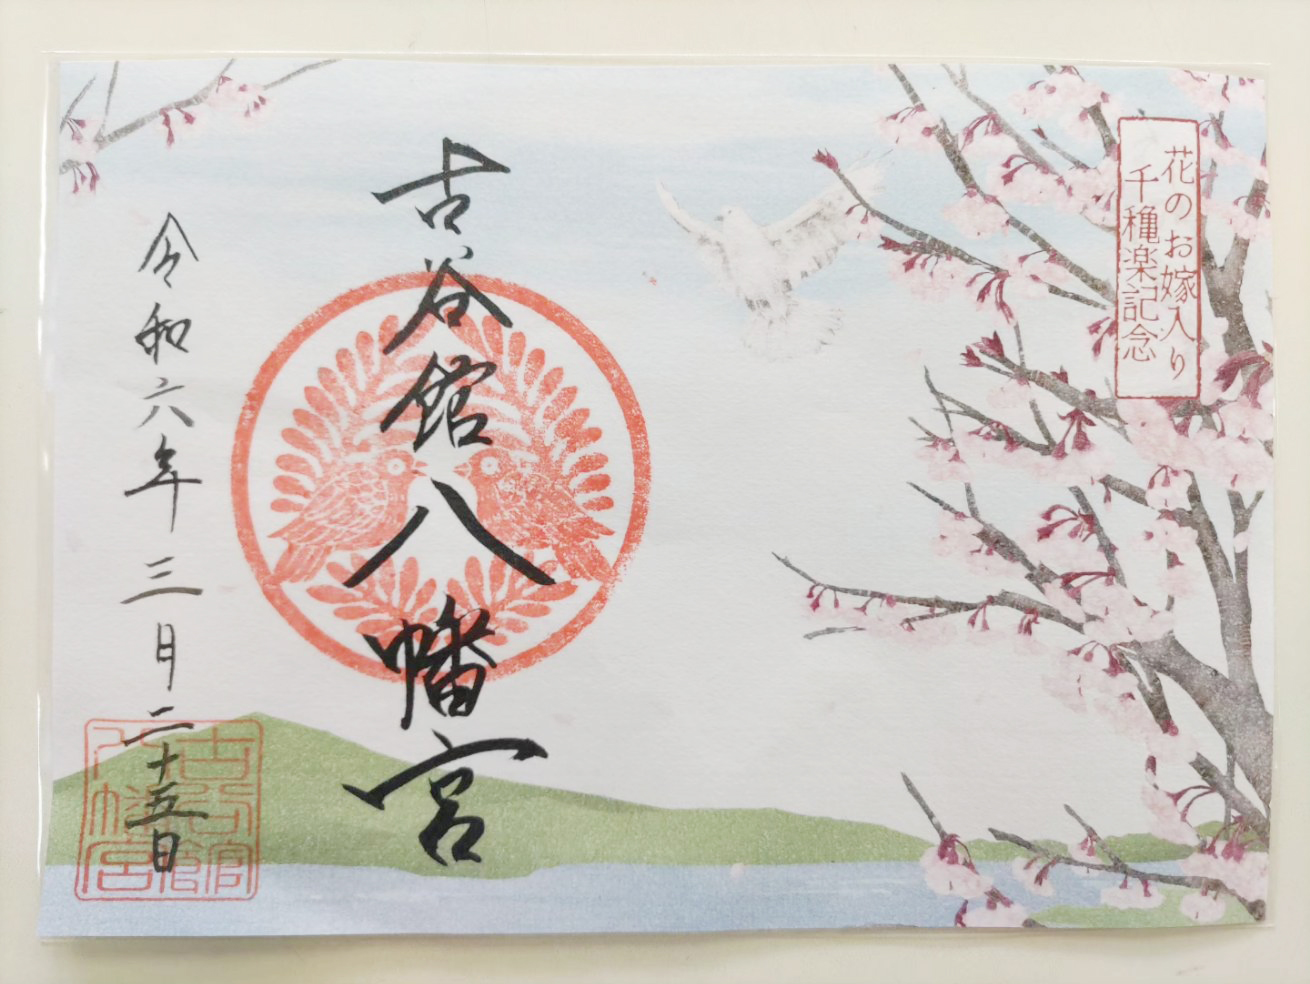 花のお嫁入り
千穐楽記念
古谷館八幡宮
令和六年三月二十五日
古谷館
八幡宮